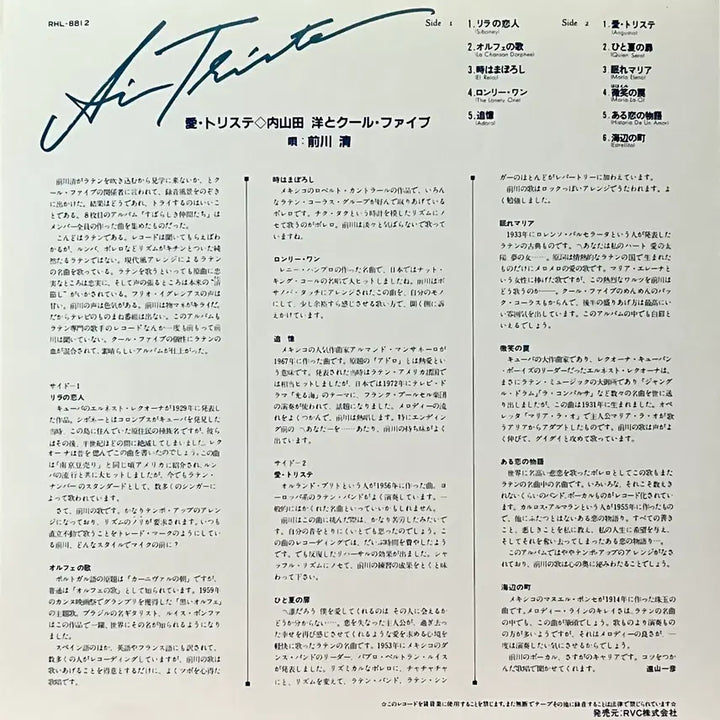 RHL-8812
Ai Triste
愛・トリステ◇内山田 洋とクール・ファイブ
唄：前川 清
Side 1
1.リラの恋人
(Siboney)
2.オルフェの歌
(La Chanson D'orphee)
3.時はまぼろし
(El Reloj)
4.ロンリー・ワン
(The Lonely One)
5.追憶
(Adoro)
Side 2
1.愛・トリステ
(Angustia)
2.ひと夏の扉
(Quien Sera)
3.眠れマリア
(Maria Elena)
4.微笑の罠
(Maria La-O)
5.ある恋の物語
(Historia De Un Amor)
6.海辺の町
(Estrellita)
前川清がラテンを吹き込むから見学に来ないか、とク
ール・ファイブの関係者に言われて、録音風景をのぞき
に出かけた。結果はどうであれ、トライするのはいいこ
とである。8枚目のアルバム「すばらしき仲間たち」は
メンバー全員の作った曲を集めたものだった。
こんどはラテンである。レコードは聞いてもらえばわ
かるが、ルンバ、ボレロなどリズムがキチンとついた純
然たるラテンではない。現代風アレンジによるラテン
の名曲を歌っている。ラテンを歌うといっても原曲に忠
実なところは忠実に、そして声の張るところは本来の“清
節し”がいかされている。フリオ・イグレシアスの声は
甘い。前川の声は色気がある。前川は物マネがキライだ
だからテレビのものまね番組は出ない。このアルバムも
ラテン専門の歌手のレコードなんか一度も前もって前
川は聞いていない。クール・ファイブの個性にラテンの
血が混合されて、素晴らしいアルバムが仕上がった。
サイド−1
リラの恋人
キューバのエルネスト・レクオーナが1929年に発表し
た作品。シボネーとはコロンブスがキューバを発見した
当時、この島に住んでいた原住民の種族名ですが、彼ら
はその後、半世紀ほどの間に絶滅してしまいました。レク
オーナは昔を偲んでこの曲を書いたのでしょう。この曲
は「南京豆売り」と同じ頃アメリカに紹介され、ルン
バの流行と共に大ヒットしましたが、今でもラテン・
ナンバーのスタンダードとして、数多くのシンガーに
よって歌われています。
さて、前川の歌です。かなりテンポ・アップのアレン
ジになっており、リズムのノリが要求されます。いつも
直立不動で歌うことをトレード・マークのようにしてい
る前川、どんなスタイルでマイクの前に？
オルフェの歌
ポルトガル語の原題は「カーニヴァルの朝」ですが、
普通は「オルフェの歌」として知られています。1959年
のカンヌ映画祭でグランプリを獲得した「黒いオルフェ」
の主題歌。ブラジルの名ギタリスト、ルイス・ボンファ
はこの作品で一躍、世界にその名が知られるようになり
ました。
スペイン語のほか、英語やフランス語にも訳されて、
数多くの人がレコーディングしていますが、前川の歌は
歌いあげることを得意とするだけに、よくツボを心得た
歌唱です。
時はまぼろし
メキシコのロベルト・カントラールの作品で、いろん
なラテン・コーラス・グループが好んで取りあげている
ボレロです。チク・タクという時計を模したリズムにノ
セて歌うのがボレロ。前川は淡々と気ばらないで歌って
いますね。
ロンリー・ワン
レニー・ハンブロの作った名曲で、日本ではナット・
キング・コールの名唱で大ヒットしましたね。前川はボ
サノバ・タッチにアレンジされたこの曲を、自分のモノ
にして、少し余裕すら感じさせる歌い方で、聞く側に訴
えかけています。
追 憶
メキシコの人気作曲家アルマンド・マンサネーロが
1967年に作った曲です。原題の「アドロ」とは熱愛とい
う意味です。発表された当時はラテン・アメリカ諸国で
は相当ヒットしましたが、日本では1972年にテレビ・ド
ラマ「光る海」のテーマに、フランク・プールセル楽団
の演奏が使われて、話題になりました。メロディーの流
れをよくつかんで、前川は熱唱します。特にエンディン
グ前の〜あなた〜を……あたり、前川の持ち味がよく
出ています。
サイド−2
愛・トリステ
オルランド・ブリトという人が1956年に作った曲。ヨ
ーロッパ系のラテン・バンドがよく演奏しています。一
般的にはかくれた名曲といっていいかもしれません。
前川はこの曲に挑んだ際は、かなり苦労したみたいで
す。自分の音をとりにくいとても思ったのでしょう。こ
の曲のレコーディングでは、だいぶ時間を費やしたよう
です。でも反復したリハーサルの効果が出ました。シャ
ッフル・リズムにノセて、前川の練習の成果をとくと味
わって下さい。
ひと夏の扉
〜誰だろう 僕を愛してくれるのは その人に会えるか
どうか分からない……。恋を失なった主人公が、過ぎ去っ
た幸せを再び感じさせてくれるような愛を求める心境を
軽快に歌ったラテンの名曲です。1953年にメキシコのダ
ンス・バンドのリーダー、パブロ・ベルトラン・ルイス
が発表しました。リズミカルなボレロに、チャチャチャ
にと、リズムを変えて、ラテン・バンド、ラテン・シン
ガーのほとんどがレパートリーに加わえています。
前川の歌はロックっぽいアレンジでうたわれます。よ
く勉強しました。
眠れマリア
1933年にロレンソ・バルセラータという人が発表した
ラテンの古典ものです。〜あなたは私のハート 愛の太
陽 夢の女……。原詞は情熱的なラテンの国で生まれた
ものだけにメロメロの愛の歌です。マリア・エレーナと
いう女性に捧げた歌ですが、この熱烈なワルツを前川は
どう歌うのか――。クール・ファイブのめんめんのバッ
ク・コーラスもからんで、後半の盛りあげ方は最高にい
い雰囲気を出しています。このアルバムの中でも白眉と
いえるでしょう。
微笑の罠
キューバの大作曲家であり、レクオーナ・キューバン・
ボーイズのリーダーだったエルネスト・レクオーナは、
まさにラテン・ミュージックの大御所であり「ジャング
ル・ドラム」「ラ・コンパルサ」など数々の名曲を世に送
り出しましたが、この曲は1931年に生まれました。オペ
レッタ「マリア・ラ・オ」で主人公マリア・ラ・オが歌
うアリアからアダプトしたものです。前川の歌は声がよ
く伸びて、グイグイと攻めて歌っています。
ある恋の物語
世界に名高い悲恋を歌ったボレロとしてこの歌もまた
ラテンの名曲中の名曲です。いろいろな、それこそ数え
きれないくらいのバンド、ボーカルものがレコード化されて
います。カルロス・アルマランという人が1955年に作ったも
ので、他にふたつとはないある恋の物語り。すべての善きこ
と、悪しきことを私に教え、私の人生に希望を与え、
そしてそれを奪い去ってしまったある恋の物語り…。
このアルバムではややテンポ・アップのアレンジがなさ
れており、前川の歌は心の奥に秘みわたることでしょう。
海辺の町
メキシコのマヌエル・ポンセが1914年に作った珠玉の
曲です。メロディー・ラインのキレイさは、ラテンの名曲
の中でも、この曲が筆頭でしょう。歌ものより演奏もの
の方が多いようですが、それはメロディーの良さが、一
度は演奏したい気にさせるからでしょう。
前川のボーカル、さすがのキャリアです。コツをつか
んだ歌唱で聞かせてくれます。
遠山一彦
☆このレコードを賃貸業に使用することを禁じます。また無断でテープその他に録音することは法律で禁じられています☆
発売元：RVC株式会社